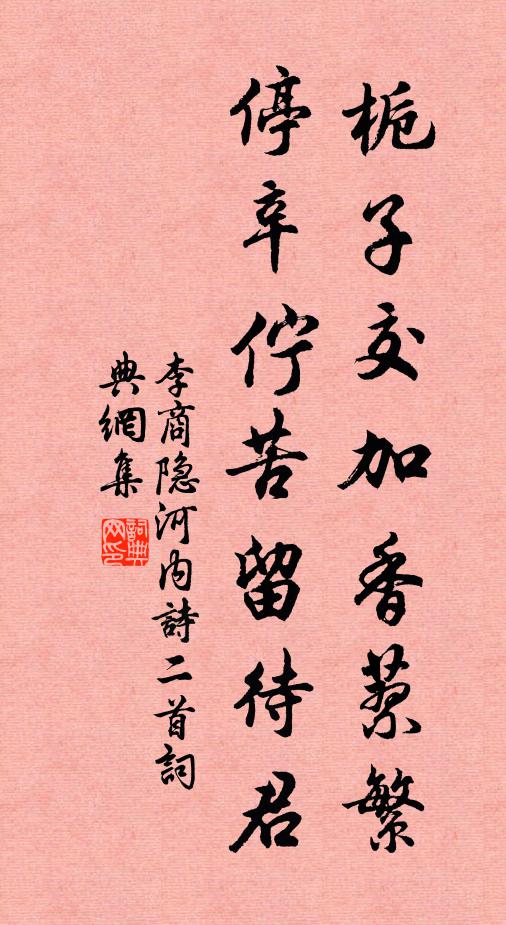 栀子交加香蓼繁
停辛佇苦留待君
李商隐河内詩二首詞
典網集
詞典网印